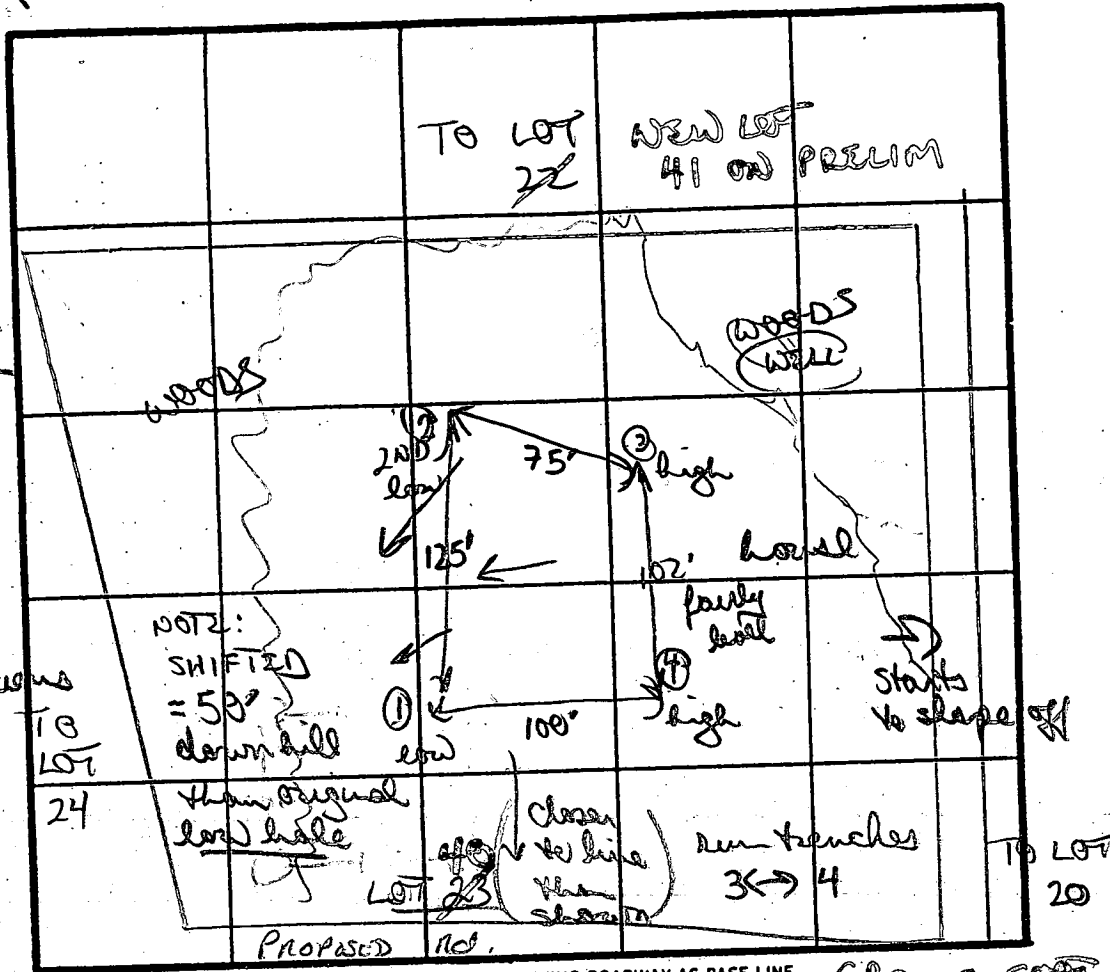 TO LOT
22
NEW LOT
41 ON PRELIM
WOODS
WELL
WOODS
2
2ND
low
75'
3
high
125'
house
102'
fairly
level
NOTE:
SHIFTED
= 50'
downhill
than original
low hole
1
low
100'
4
high
starts
to slope off
TO
LOT
24
40
LOT 23
closer
to line
than
shown
run trenches
3 <-> 4
TO LOT
20
PROPOSED rd.
ROADWAY AS BASE LINE